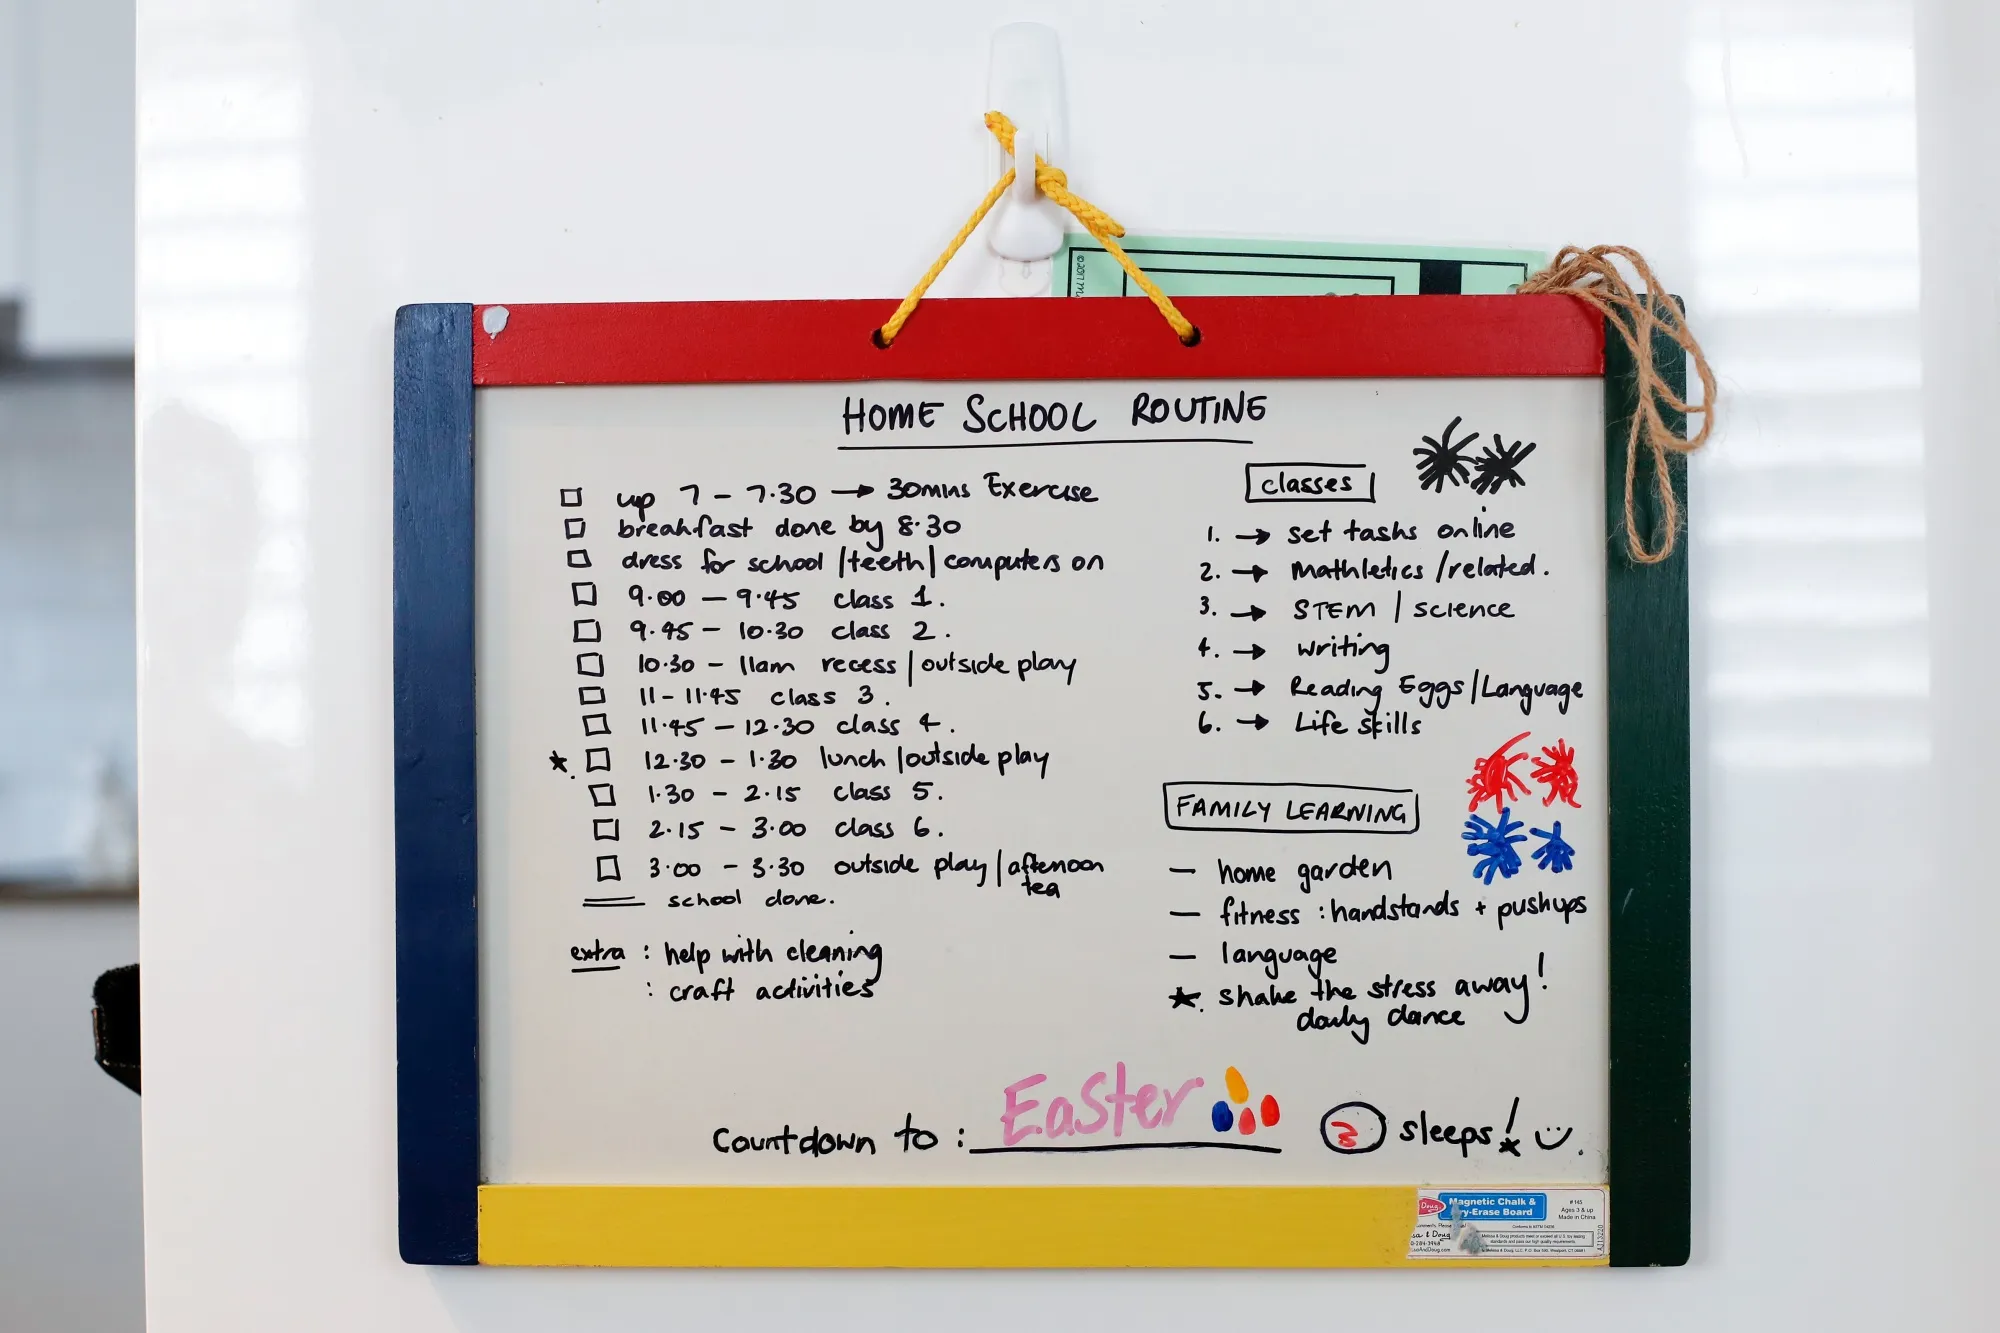 HOME SCHOOL ROUTINE
up 7 - 7.30 → 30mins Exercise
breakfast done by 8.30
dress for school / teeth / computers on
9.00 - 9.45 class 1.
9.45 - 10.30 class 2.
10.30 - 11am recess / outside play
11 - 11.45 class 3.
11.45 - 12.30 class 4.
★. 12.30 - 1.30 lunch / outside play
1.30 - 2.15 class 5.
2.15 - 3.00 class 6.
3.00 - 3.30 outside play / afternoon
tea
school done.
extra : help with cleaning
: craft activities
classes
1. → set tasks online
2. → Mathletics / related.
3. → STEM / science
4. → writing
5. → Reading Eggs / Language
6. → Life skills
FAMILY LEARNING
— home garden
— fitness : handstands + pushups
— language
★. shake the stress away!
daily dance
Countdown to : Easter 3 sleeps!
Magnetic Chalk &
ry-Erase Board
#145
Ages 3 & up
Made in China
Doug
sa & Doug
AJ113220